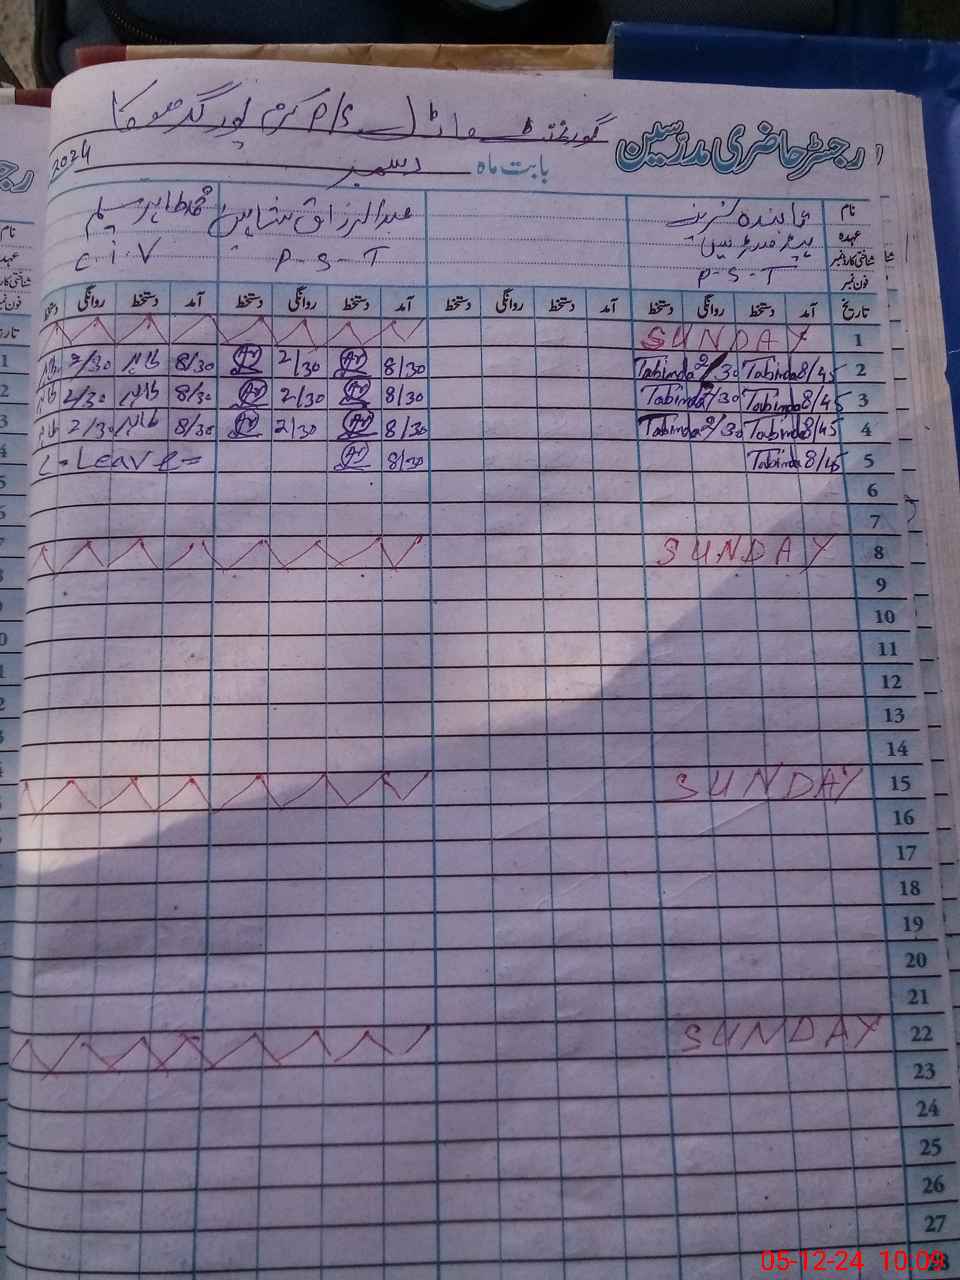 رجسٹر حاضری مدرسین
گورنمنٹ P/S
بابت ماہ دسمبر 2024
نام تابندہ عبدالرزاق شاہین محمد طاہر
عہدہ ہیڈ مسٹریس P-S-T
شناختی کارڈ نمبر P-S-T
فون نمبر
تاریخ آمد دستخط روانگی دستخط آمد دستخط روانگی دستخط آمد دستخط روانگی دستخط آمد دستخط روانگی دستخط
1 SUNDAY
2 8/45 Tabinda 2/30 Tabinda 8/30 2/30 8/30 طاہر 2/30 طاہر
3 8/45 Tabinda 2/30 Tabinda 8/30 2/30 8/30 طاہر 2/30 طاہر
4 8/45 Tabinda 2/30 Tabinda 8/30 2/30 8/30 طاہر 2/30 طاہر
5 8/45 Tabinda 8/30 L-Leave=
6
7
8 SUNDAY
9
10
11
12
13
14
15 SUNDAY
16
17
18
19
20
21
22 SUNDAY
23
24
25
26
27
28
05-12-24 10:09